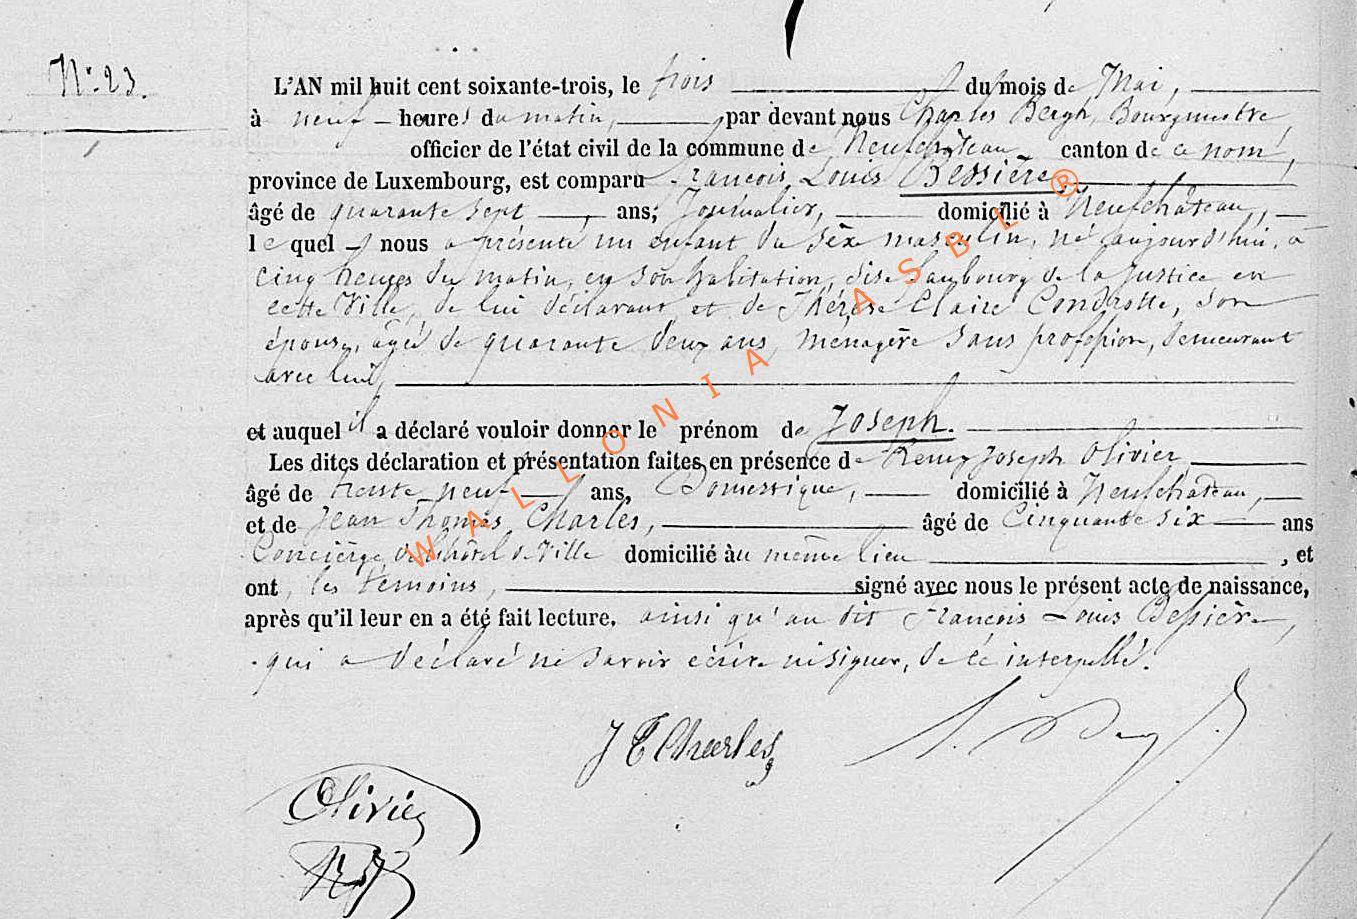 N° 23.
L'AN mil huit cent soixante-trois, le trois du mois de Mai,
à neuf heures du matin, par devant nous Charles Bergh, Bourgmestre,
officier de l'état civil de la commune de Neufchâteau canton de ce nom,
province de Luxembourg, est comparu François Louis Bessière
âgé de quarante sept ans, Journalier, domicilié à Neufchâteau,
le quel nous a présenté un enfant du sèxe masculin, né aujourd'hui, à
cinq heures du matin, en son habitation, dise faubourg de la justice en
cette Ville, de lui déclarant et de Thérèse Claire Condrotte, son
épouse, agée de quarante deux ans, ménagère sans profession, demeurant
avec lui,
et auquel il a déclaré vouloir donner le prénom de Joseph.
Les dites déclaration et présentation faites en présence de Remy Joseph Olivier,
âgé de trente neuf ans, Domestique, domicilié à Neufchateau,
et de Jean Thomas Charles, âgé de Cinquante six ans
Concièrge de l'hôtel de Ville domicilié àu même lieu, et
ont, les témoins, signé avec nous le présent acte de naissance,
après qu'il leur en a été fait lecture. ainsi qu'au dit François Louis Bessière,
qui a déclaré ne savoir écrire ni signer, de ce interpellé.
J T Charles
Olivier
WALLONIA ASBL ®